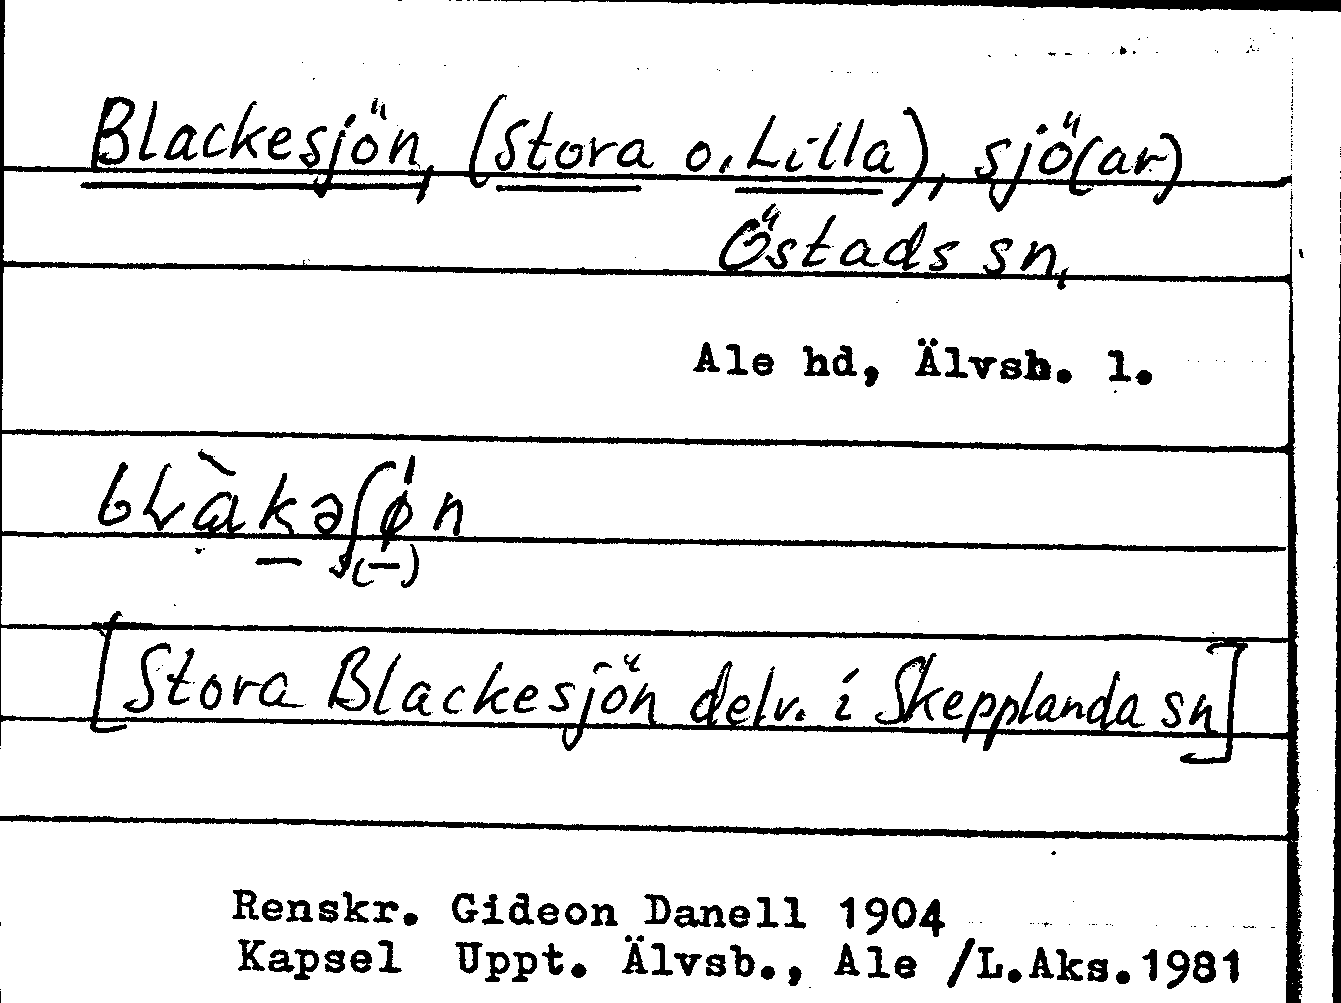 Blackesjön, (Stora o. Lilla), sjö(ar)
Östads sn,
Ale hd, Älvsb. l.
[Stora Blackesjön delv. i Skepplanda sn]
Renskr. Gideon Danell 1904
Kapsel Uppt. Älvsb., Ale /L.Aks.1981